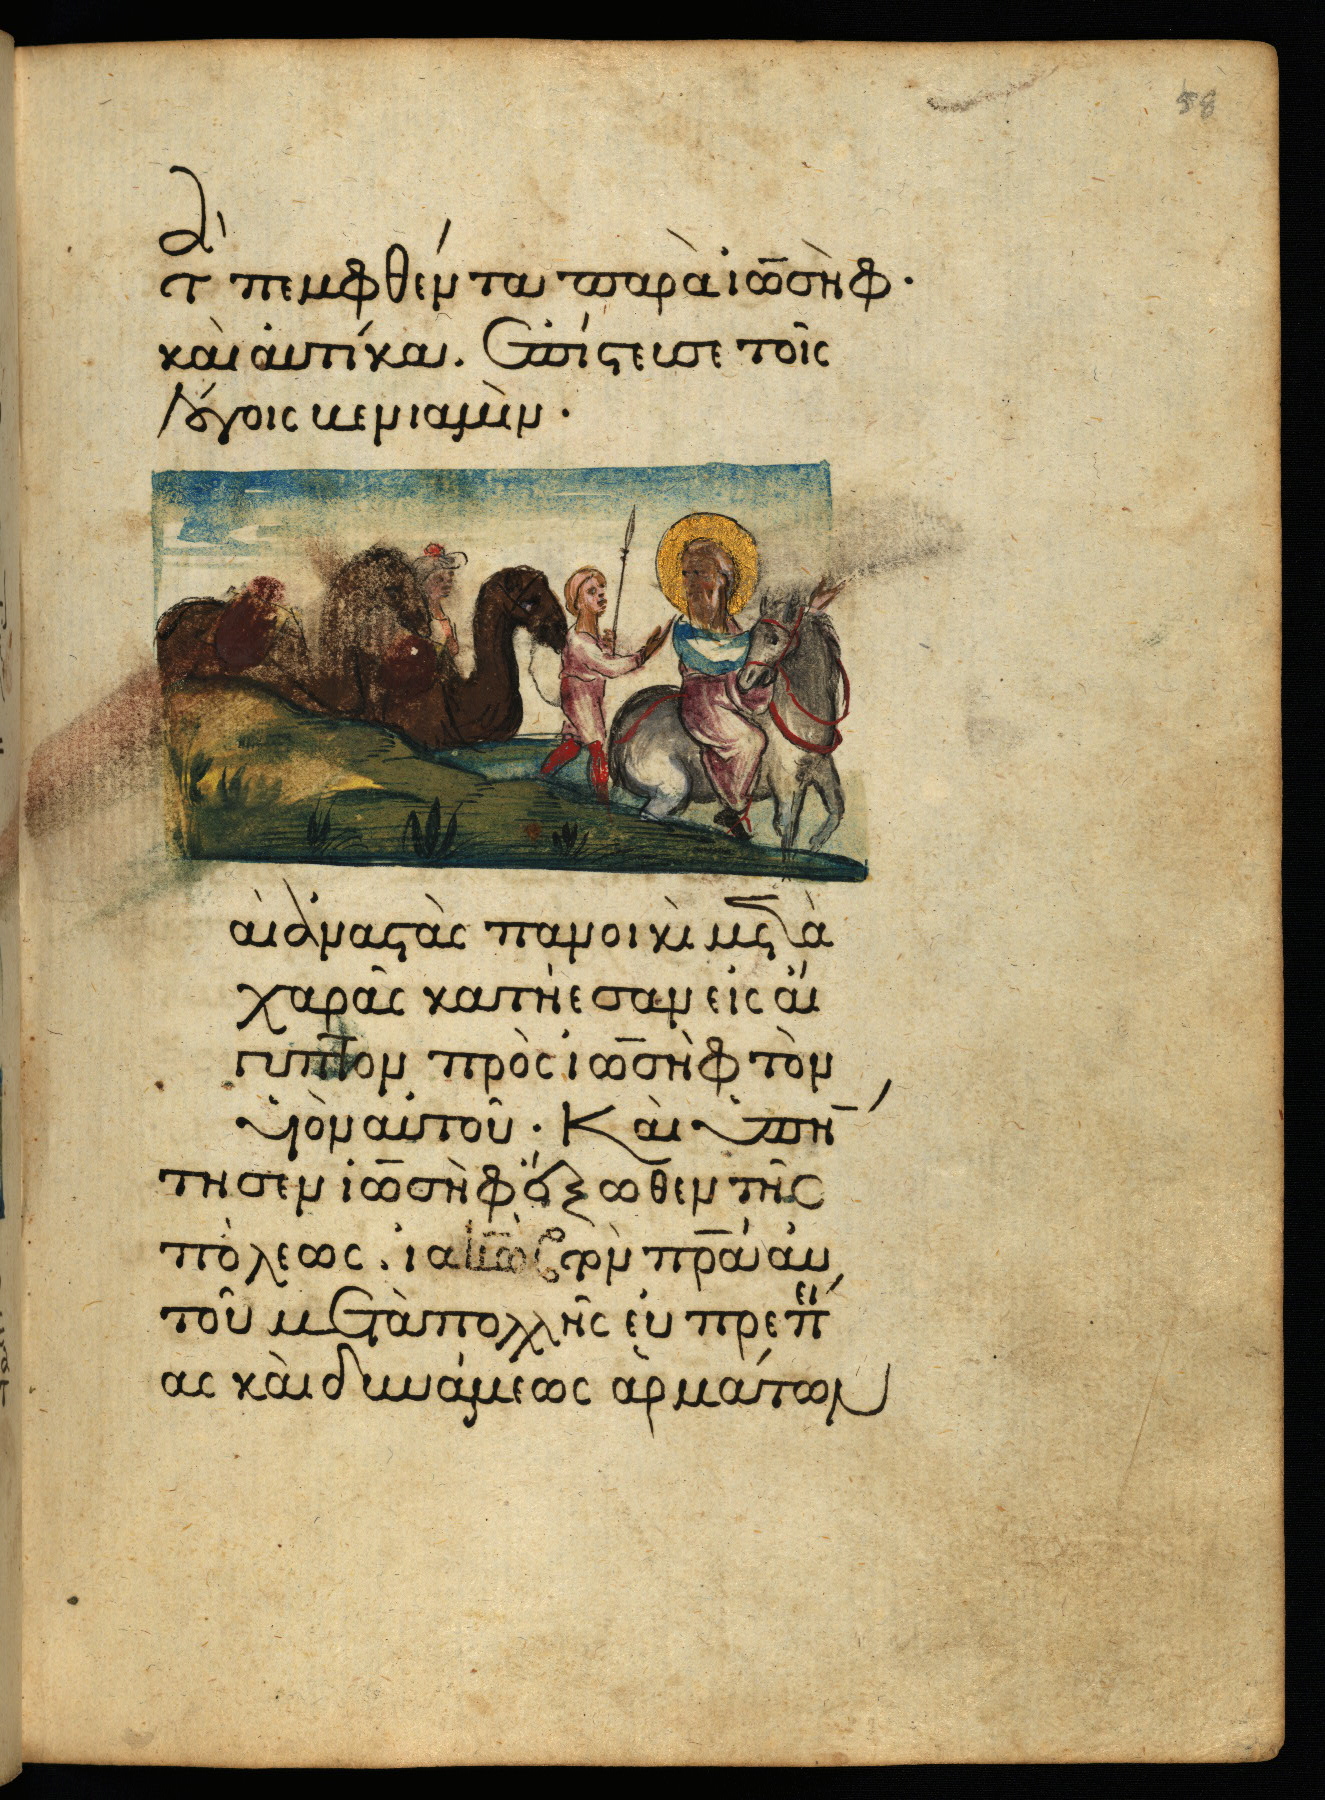 58
τ πεμφθέντα παρὰ ἰωσὴφ·
καὶ αὐτίκα. ἐπίστευσε τοῖς
λόγοις βενιαμὴν·
ἀναστὰς πανοικὶ μετὰ
χαρᾶς κατήεσαν εἰς αἴ
γυπτον πρὸς ἰωσὴφ τὸν
υἱὸν αὐτοῦ· Καὶ ὑπήν
τησεν ἰωσὴφ ἔξωθεν τῆς
πόλεως. ἰακὼβ τὸν πρα αὐ
τοῦ μετὰ πολλῆς εὐπρεπεί
ας καὶ δυνάμεως ἁρμάτων